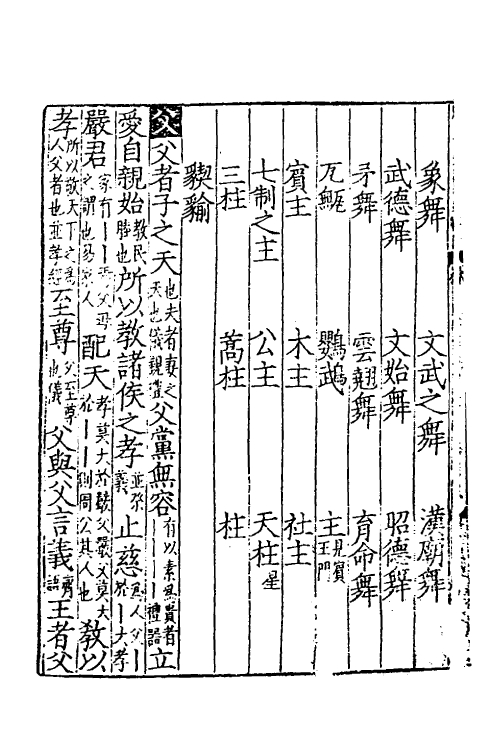 象舞 文武之舞 漢廟舞
武德舞 文始舞 昭德舞
矛舞 雲翹舞 育命舞
瓦甒 鸚鵡 主見賓王門
賓主 木主 社主
七制之主 公主 天柱星
三柱 蒿柱 柱
貐
父 父者子之天也夫者妻之天也儀 父黨無容有以素爲貴者｜｜｜｜禮器 立
愛自親始教民睦也 所以教諸侯之孝並祭義 止慈爲人父｜於｜大孝
嚴君家有｜｜焉父母之謂也易家人 配天孝莫大於嚴父嚴父莫大於｜｜則周公其人也 敎以
孝所以敬天下之爲人父者也並孝經 至尊父至尊也儀 父與父言義齊語 王者父